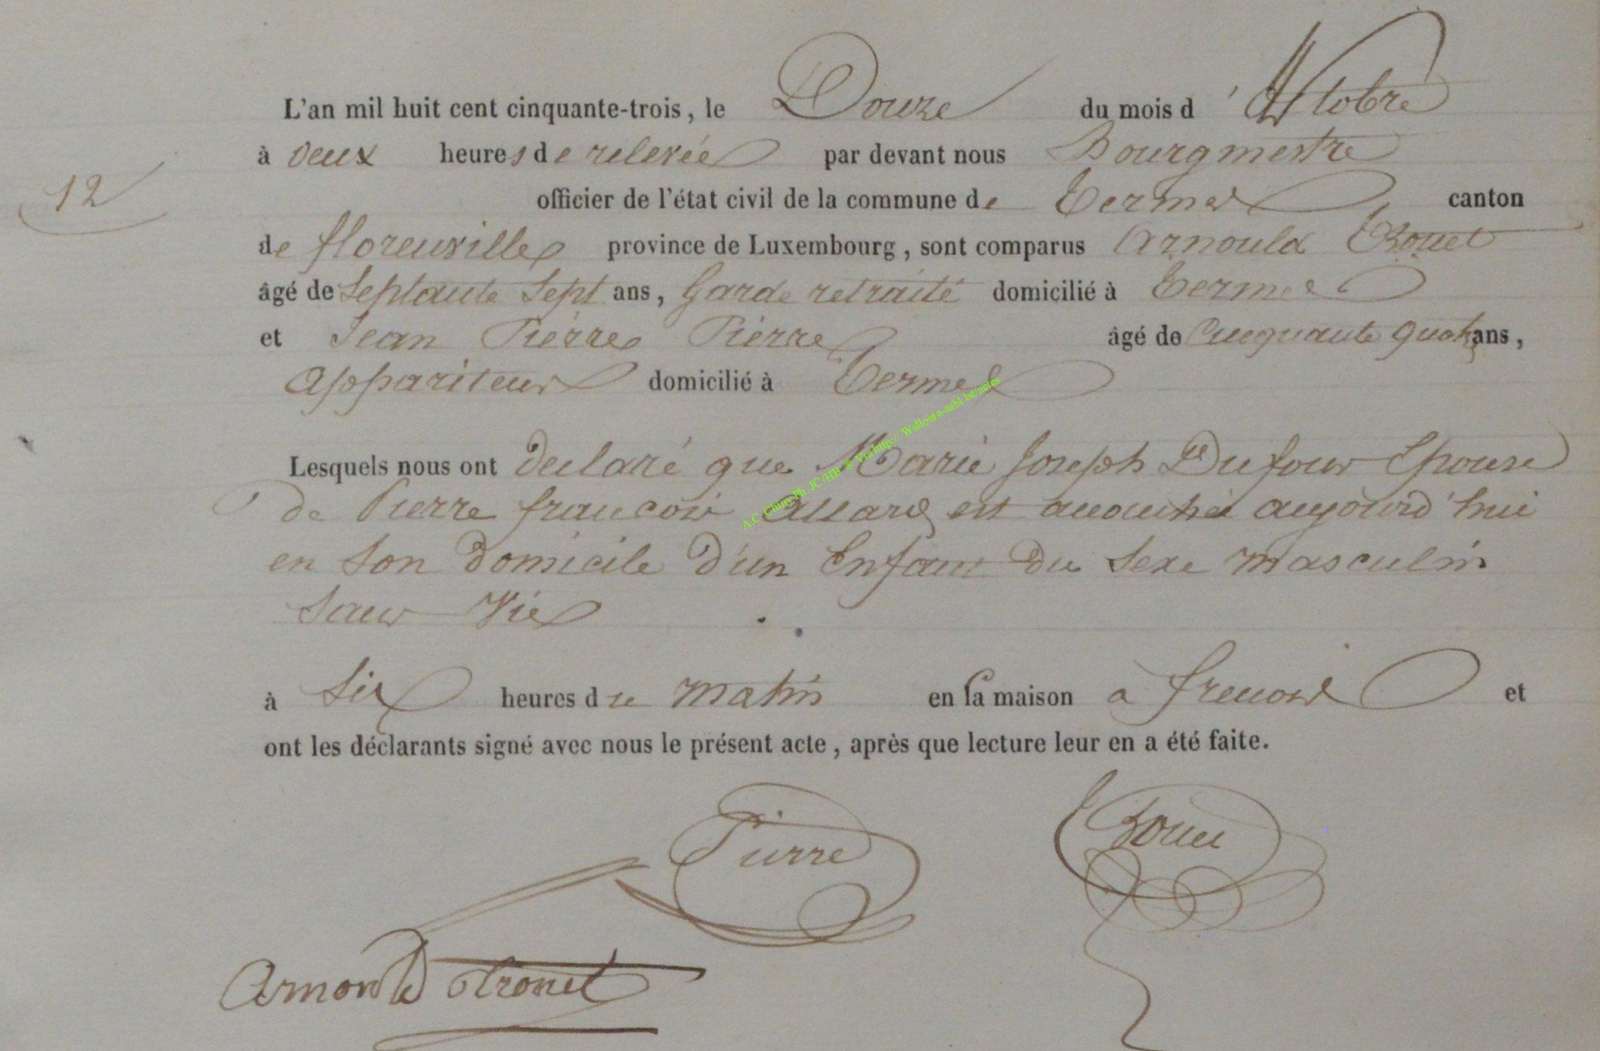 L'an mil huit cent cinquante-trois, le Douze du mois d'Octobre
à deux heures de relevée par devant nous Bourgmestre
12
officier de l'état civil de la commune de Termes canton
de florenville province de Luxembourg, sont comparus Arnould Trouet
âgé de Septante Sept ans, Garde retraité domicilié à Termes
et Jean Pierre Pierre âgé de Cinquante quatre ans,
appariteur domicilié à Termes
Lesquels nous ont declaré que Marie Joseph Dufour Epouse
de Pierre françois Allard est accouchée aujourd'hui
en son domicile d'un Enfant du sexe masculin
sans vie
à six heures du matin en sa maison a frenois et
ont les déclarants signé avec nous le présent acte, après que lecture leur en a été faite.
Pierre
Arnould